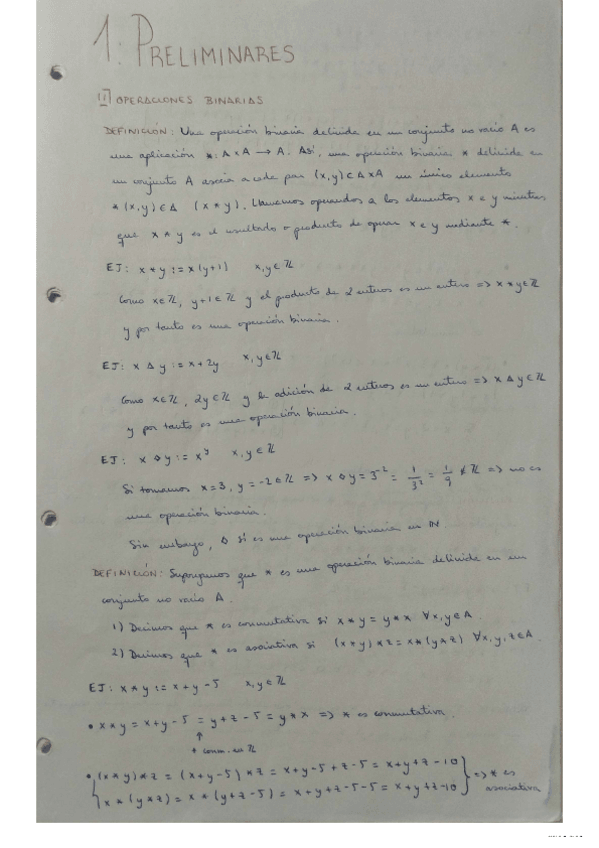 1. PRELIMINARES
1.1 OPERACIONES BINARIAS
DEFINICIÓN: Una operación binaria definida en un conjunto no vacío A es
una aplicación *: A x A → A. Así, una operación binaria * definida en
un conjunto A asocia a cada par (x,y) ∈ A x A un único elemento
*(x,y) ∈ A (x * y). Llamamos operandos a los elementos x e y mientras
que x * y es el resultado o producto de operar x e y mediante *.
EJ: x * y := x(y+1) x,y ∈ ℤ
Como x ∈ ℤ, y+1 ∈ ℤ y el producto de 2 enteros es un entero => x * y ∈ ℤ
y por tanto es una operación binaria.
EJ: x Δ y := x + 2y x,y ∈ ℤ
Como x ∈ ℤ, 2y ∈ ℤ y la adición de 2 enteros es un entero => x Δ y ∈ ℤ
y por tanto es una operación binaria.
EJ: x ◇ y := x^y x,y ∈ ℤ
Si tomamos x = 3, y = -2 ∈ ℤ => x ◇ y = 3^-2 = 1/3^2 = 1/9 ∉ ℤ => no es
una operación binaria.
Sin embargo, ◇ sí es una operación binaria en ℕ
DEFINICIÓN: Supongamos que * es una operación binaria definida en un
conjunto no vacío A.
1) Decimos que * es conmutativa si x * y = y * x ∀x,y ∈ A.
2) Decimos que * es asociativa si (x * y) * z = x * (y * z) ∀x,y,z ∈ A.
EJ: x * y := x + y - 5 x,y ∈ ℤ
• x * y = x + y - 5 = y + z - 5 = y * x => * es conmutativa.
↑
+ conm. en ℤ
• (x * y) * z = (x + y - 5) * z = x + y - 5 + z - 5 = x + y + z - 10
x * (y * z) = x * (y + z - 5) = x + y + z - 5 - 5 = x + y + z - 10 => * es
asociativa